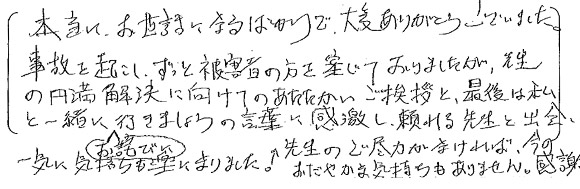 本当に、お世話になるばかりで、大変ありがとうございました。
事故を起こし、ずっと被害者の方を案じておりましたが、先生
の円満解決に向けてのあたたかいご挨拶と、最後は私
と一緒に行きましょうの言葉に感激し、頼れる先生と出会い
お詫びに
一気に気持ちも楽になりました。先生のご尽力がなければ、今の
おだやかな気持ちもありません。感謝